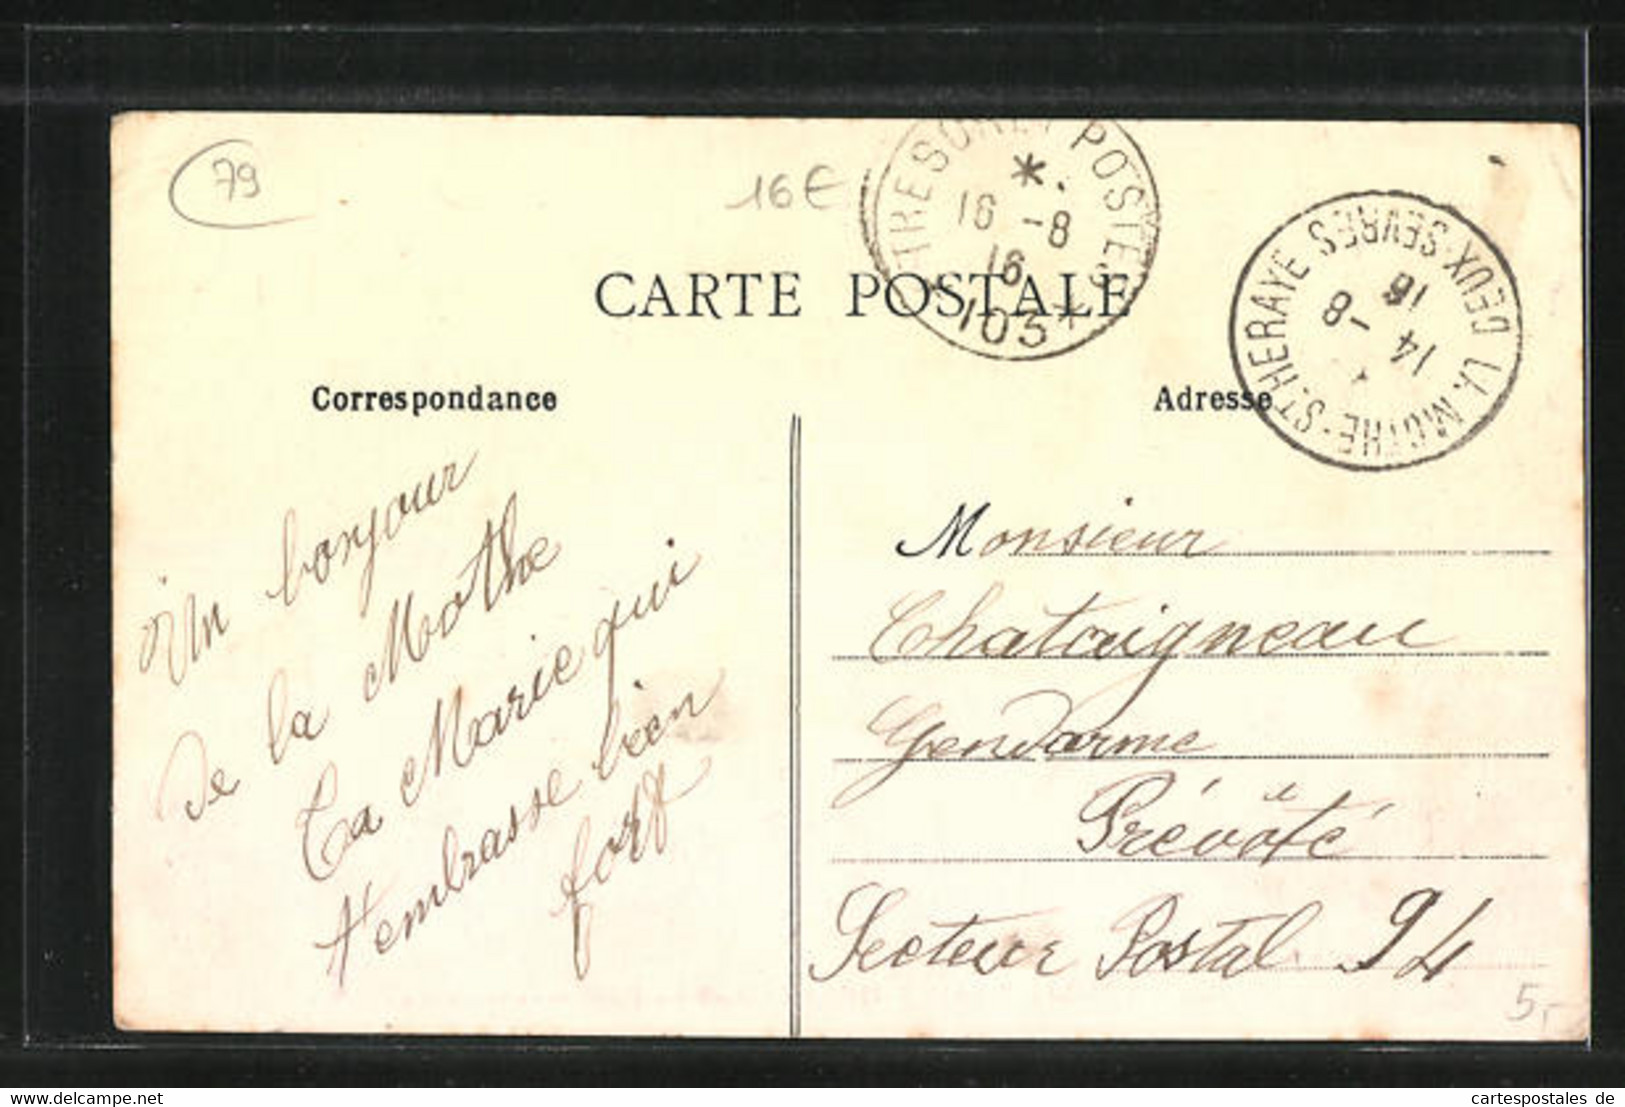 79
16€
TRESOR ET POSTES
*
16 -8
16
* 103 *
LA MOTHE-ST.HERAYE DEUX-SEVRES
14 -8
16
CARTE POSTALE
Correspondance
Adresse
Un bonjour
de la Mothe
Ta Marie qui
t'embrasse bien
fort
Monsieur
Chataigneau
Gendarme
Prévôté
Secteur Postal 94
5,-
www.delcampe.net
cartespostales de